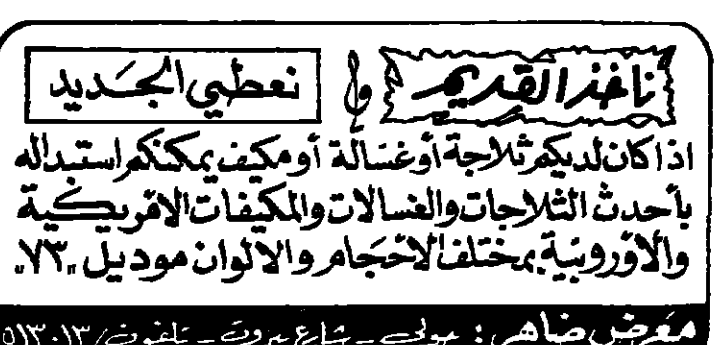 ناخذ القديم و نعطي الجديد
اذا كان لديكم ثلاجة أو غسالة أو مكيف يمكنكم استبداله
بأحدث الثلاجات والغسالات والمكيفات الامريكية
والاوروبية بمختلف الاحجام والالوان موديل "٧٣"
معرض ضاهر : حولي - شارع بيروت - تلفون / ٥١٣٠١٣